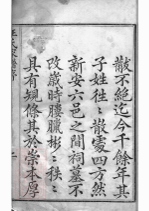 散不絶迄今千餘年其
子姓徃徃散處四方然
新安六邑之間祠墓不
改歳時腰臘彬彬秩秩
具有規條其於崇本厚